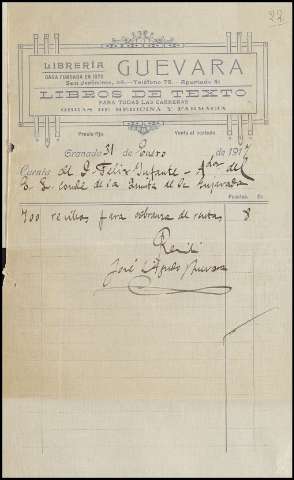 27
LIBRERÍA GUEVARA
CASA FUNDADA EN 1875
San Jerónimo, Teléfono 75. - Apartado 41
LIBROS DE TEXTO
PARA TODAS LAS CARRERAS
OBRAS DE MEDICINA Y FARMACIA
Precio fijo Venta al contado
Granada 31 de Enero de 191
Cuenta de D. Félix Infante - Ador del
E. S. Conde de la Quinta de la Enjarada
Pesetas Cs
700 recibos para cobranza de rentas 8
Recibí
José Agudo Guevara